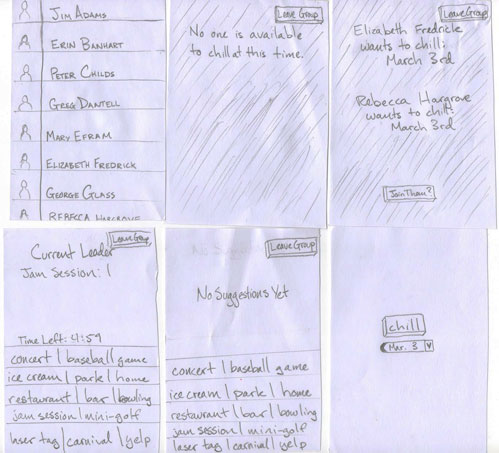 Jim Adams
Erin Banhart
Peter Childs
Greg Dantell
Mary Efram
Elizabeth Fredrick
George Glass
Rebecca Hargrove
Leave Group
No one is available
to chill at this time.
Leave Group
Elizabeth Fredrick
wants to chill:
March 3rd
Rebecca Hargrove
wants to chill:
March 3rd
Join Them?
Leave Group
Current Leader
Jam Session: 1
Time Left: 41:59
concert | baseball game
ice cream | park | home
restaurant | bar | bowling
jam session | mini-golf
laser tag | carnival | yelp
Leave Group
No Suggestions Yet
concert | baseball game
ice cream | park | home
restaurant | bar | bowling
jam session | mini-golf
laser tag | carnival | yelp
chill
Mar. 3